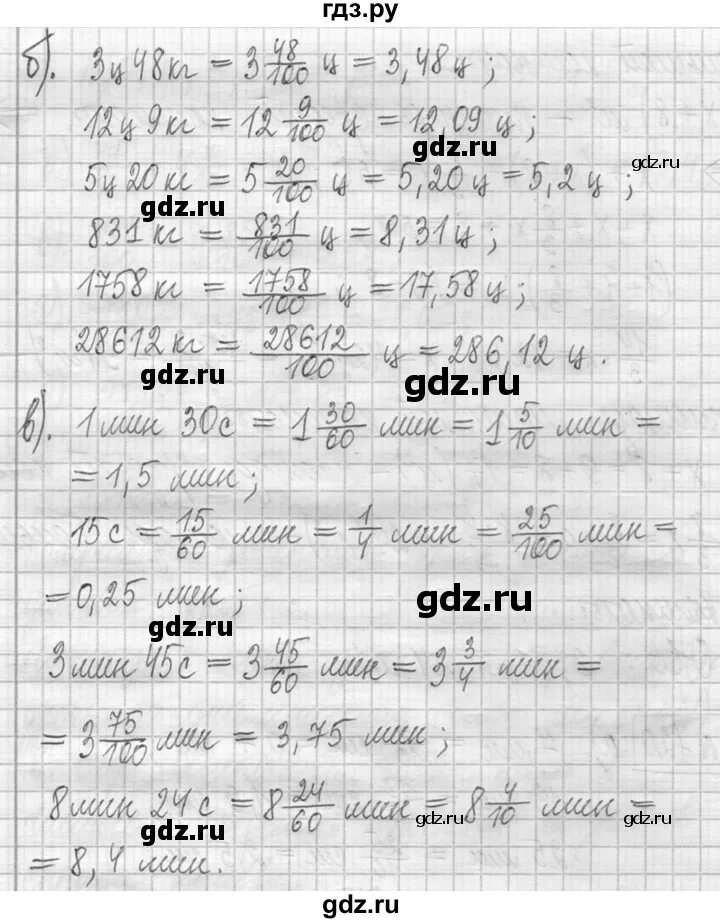 гдз.ру
б). 3ц 48кг = 3 48/100 ц = 3,48 ц ;
12ц 9кг = 12 9/100 ц = 12,09 ц ;
gdz.ru
gdz.ru
5ц 20 кг = 5 20/100 ц = 5,20 ц = 5,2 ц ;
gdz.ru
831 кг = 831/100 ц = 8,31 ц ;
1758 кг = 1758/100 ц = 17,58 ц ;
28612 кг = 28612/100 ц = 286,12 ц .
gdz.ru
gdz.ru
в). 1 мин 30с = 1 30/60 мин = 1 5/10 мин =
= 1,5 мин ;
15с = 15/60 мин = 1/4 мин = 25/100 мин =
= 0,25 мин ;
gdz.ru
gdz.ru
3 мин 45с = 3 45/60 мин = 3 3/4 мин =
= 3 75/100 мин = 3,75 мин ;
8 мин 24 с = 8 24/60 мин = 8 4/10 мин =
gdz.ru
gdz.ru
gdz.ru
= 8,4 мин.
gdz.ru